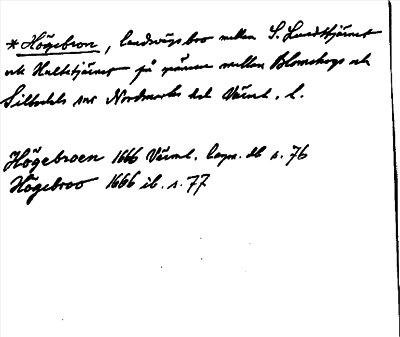 *Högebron, landsvägsbro mellan S. Lundstjärnet
och Hultetjärnet på gränsen mellan Blomskogs och
Sillbodals snr Nordmarks hd Värml. l.
Högebroen 1666 Värml. lagm. db s. 76
Högebroo 1666 ib. s. 77